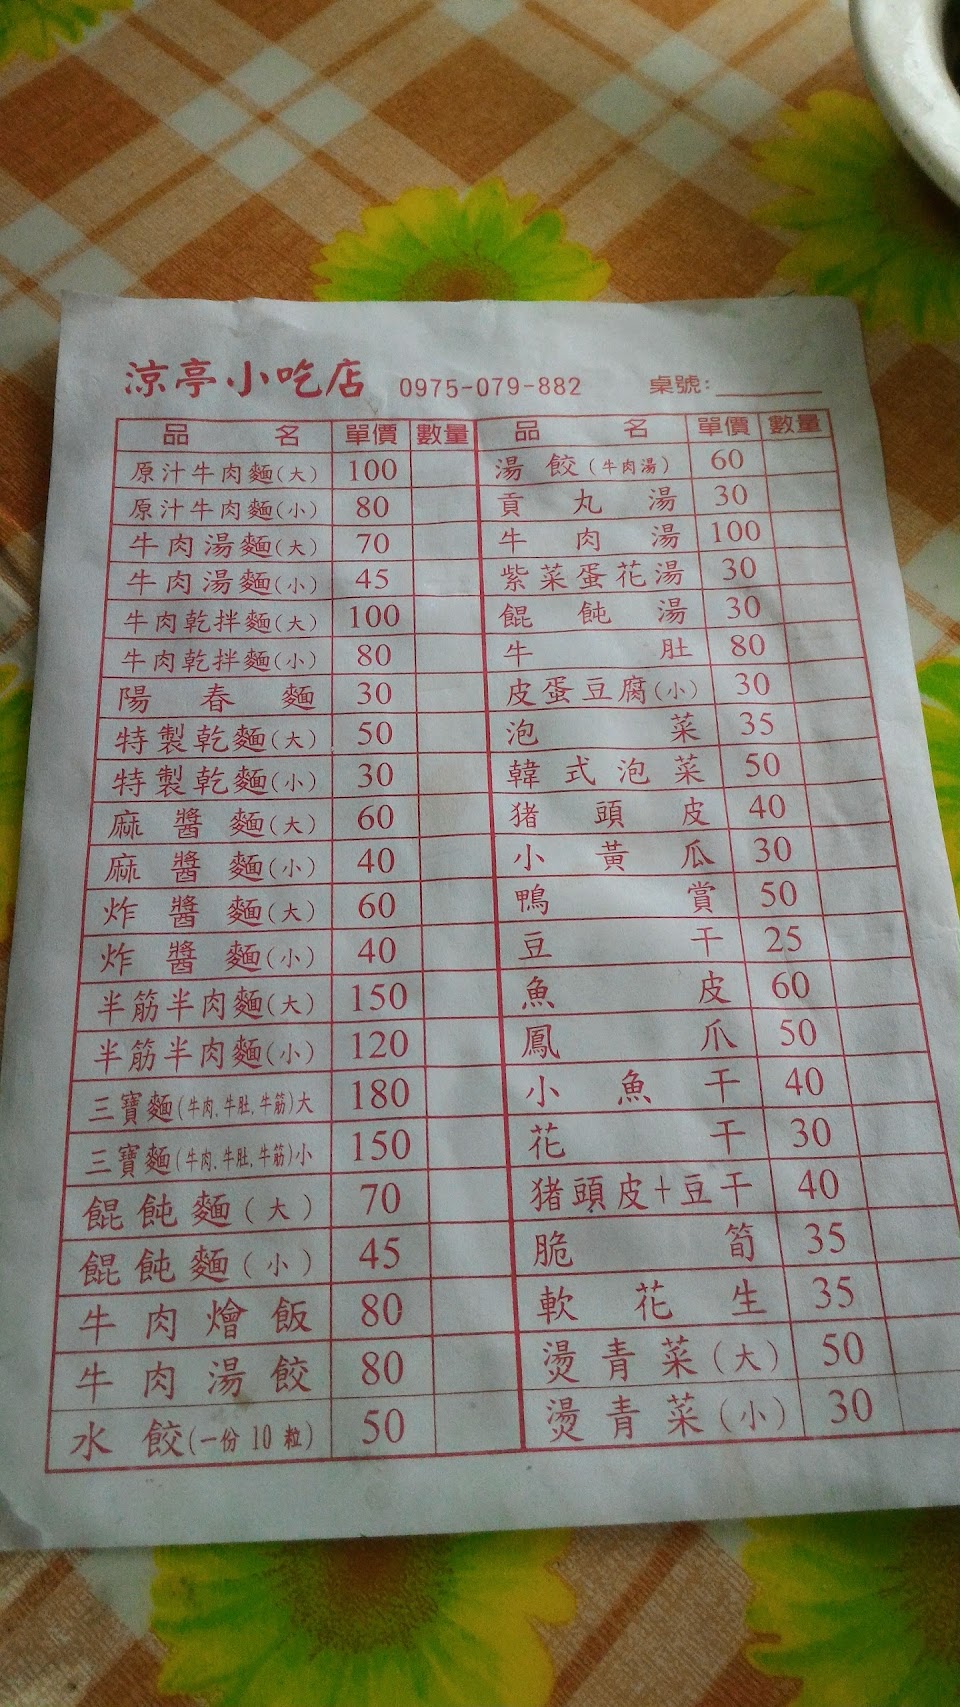 涼亭小吃店 0975-079-882 桌號:
品名 單價 數量 品名 單價 數量
原汁牛肉麵(大) 100 湯餃(牛肉湯) 60
原汁牛肉麵(小) 80 貢丸湯 30
牛肉湯麵(大) 70 牛肉湯 100
牛肉湯麵(小) 45 紫菜蛋花湯 30
牛肉乾拌麵(大) 100 餛飩湯 30
牛肉乾拌麵(小) 80 牛肚 80
陽春麵 30 皮蛋豆腐(小) 30
特製乾麵(大) 50 泡菜 35
特製乾麵(小) 30 韓式泡菜 50
麻醬麵(大) 60 猪頭皮 40
麻醬麵(小) 40 小黃瓜 30
炸醬麵(大) 60 鴨賞 50
炸醬麵(小) 40 豆干 25
半筋半肉麵(大) 150 魚皮 60
半筋半肉麵(小) 120 鳳爪 50
三寶麵(牛肉.牛肚.牛筋)大 180 小魚干 40
三寶麵(牛肉.牛肚.牛筋)小 150 花干 30
餛飩麵(大) 70 猪頭皮+豆干 40
餛飩麵(小) 45 脆筍 35
牛肉燴飯 80 軟花生 35
牛肉湯餃 80 燙青菜(大) 50
水餃(一份10粒) 50 燙青菜(小) 30